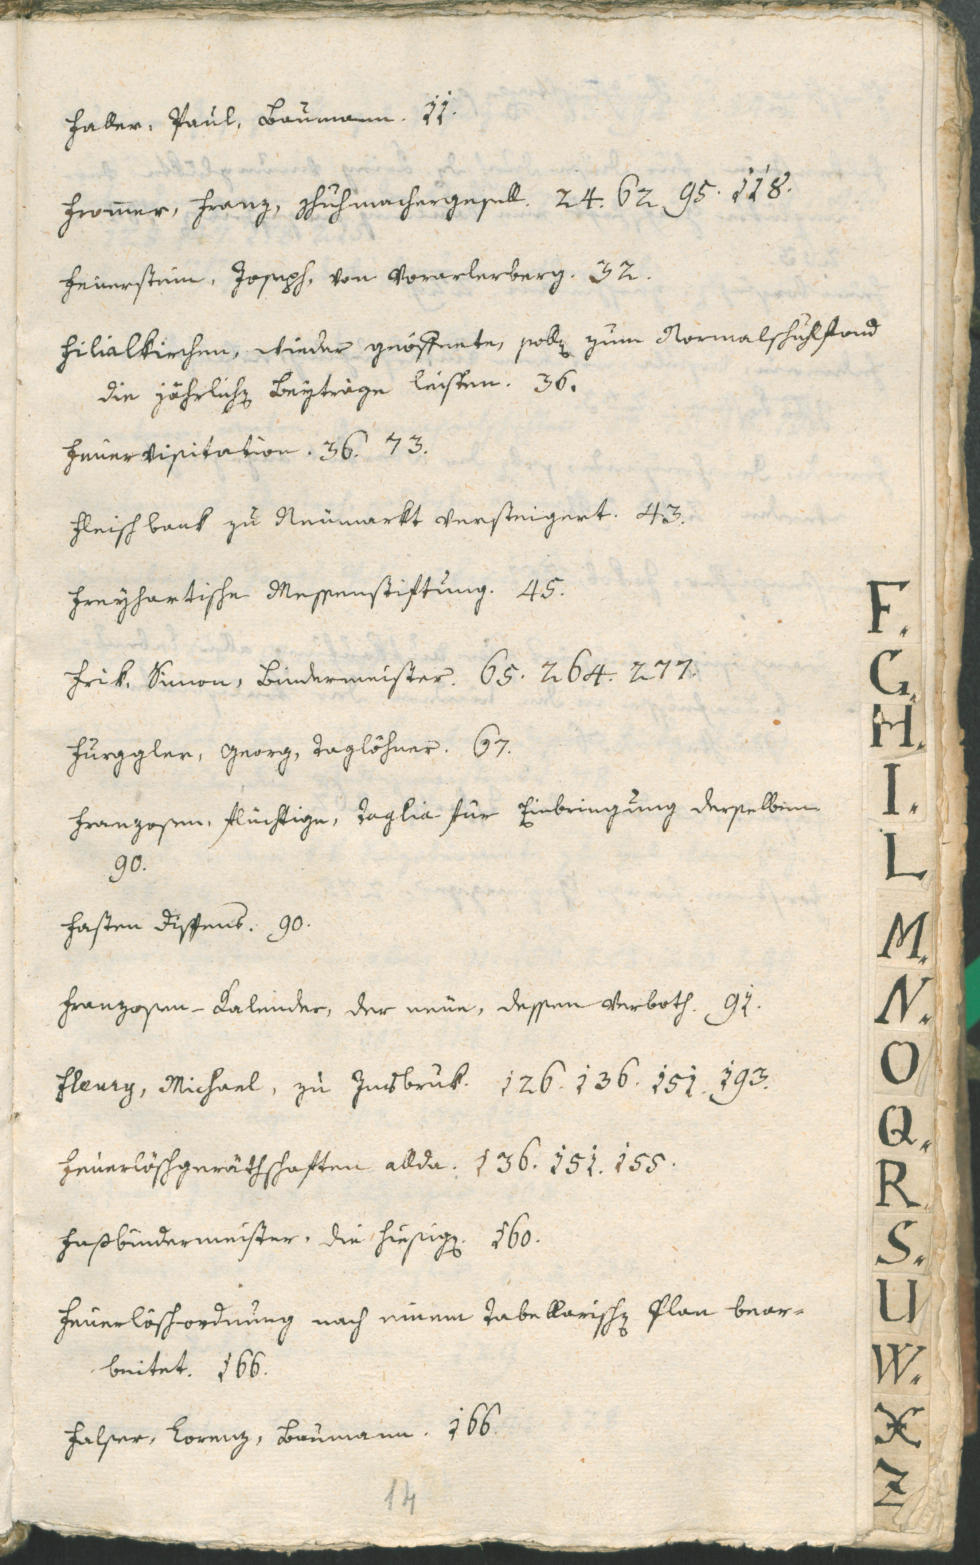 Faller, Paul, Baumann. 11.
Frommer, Franz, Schuhmachergesell. 24. 62. 95. 118.
Feuerstein, Joseph, von Vorarlerberg. 32.
Filialkirchen, wieder geöffnete, solln zum Normalschuhlfond
die jährlichn Beyträge leisten. 36.
Feuervisitation. 36. 73.
Fleischbank zu Neumarkt versteigert. 43.
Freyhartische Messenstiftung. 45.
Frik, Simon, Bindermeister. 65. 264. 277.
Furggler, Georg, Taglöhner. 67.
Franzosen, flüchtige, Taglia für Einbringung derselben
90.
Fasten Dispens. 90.
Franzosen-Kalender, der neue, dessen Verboth. 91.
Fleury, Michael, zu Insbruk. 126. 136. 151. 193.
Feuerlöschgeräthschaften allda. 136. 151. 155.
Faßbindermeister, die hiesign. 160.
Feuerlöschordnung nach einem Tabellarischn Plan bear-
beitet. 166.
Falser, Lorenz, Baumann. 166.
14
F.
G.
H.
I.
L
M.
N.
O
Q.
R.
S.
U
W.
X
Z